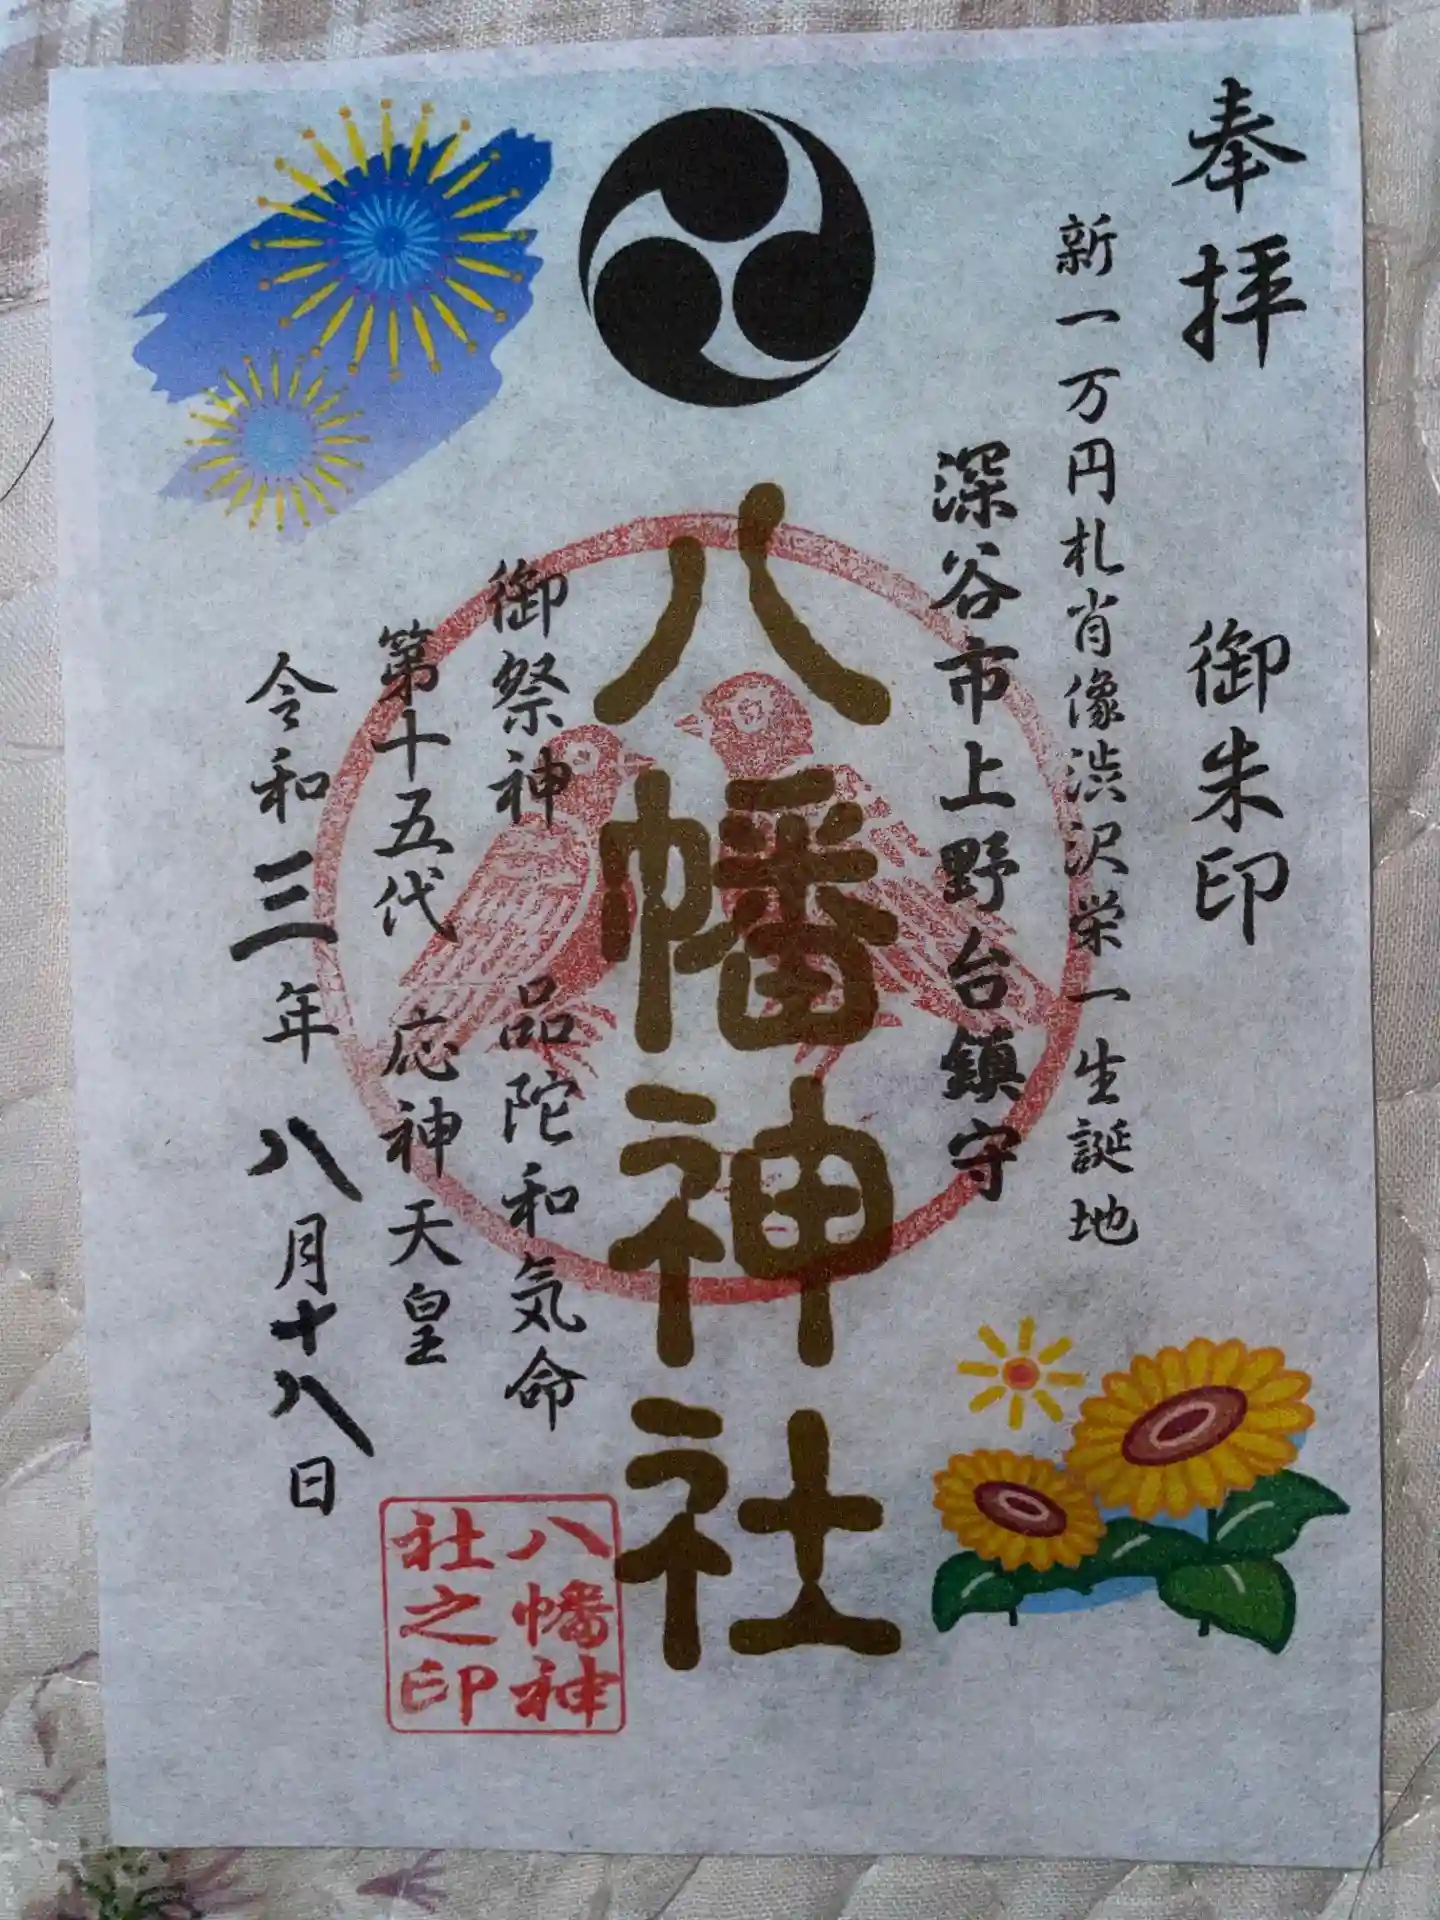 奉拝 御朱印
新一万円札肖像渋沢栄一生誕地
深谷市上野台鎮守
八幡神社
御祭神 品陀和気命
第十五代 応神天皇
令和三年 八月十八日
八幡神
社之印